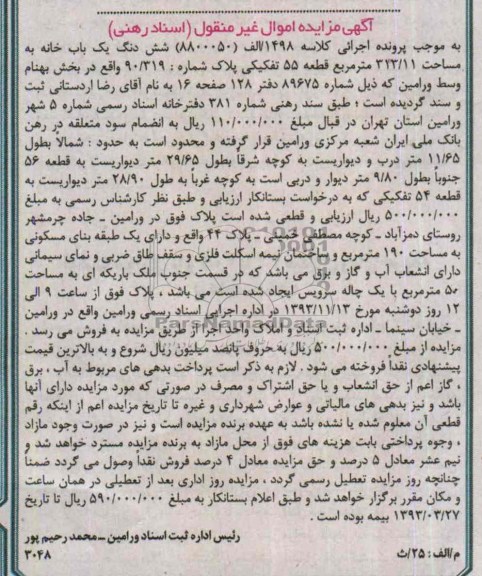 آگهی مزایده اموال غیر منقول (اسناد رهنی)
به موجب پرونده اجرائی کلاسه ۱۴۹۸/الف (۸۸۰۰۰۵۰) شش دنگ یک باب خانه به
مساحت ۳۴۳/۱۱ مترمربع قطعه ۵۵ تفکیکی پلاک شماره : ۹۰/۳۱۹ واقع در بخش بهنام
وسط ورامین که ذیل شماره ۸۹۶۷۵ دفتر ۱۲۸ صفحه ۱۶ به نام آقای رضا اردستانی ثبت
و سند گردیده است ؛ طبق سند رهنی شماره ۳۸۱ دفترخانه اسناد رسمی شماره ۵ شهر
ورامین استان تهران در قبال مبلغ ۱۱۰/۰۰۰/۰۰۰ ریال به انضمام سود متعلقه در رهن
بانک ملی ایران شعبه مرکزی ورامین قرار گرفته و محدود است به حدود : شمالاً بطول
۱۱/۶۵ متر درب و دیواریست به کوچه شرقاً بطول ۲۹/۶۵ متر دیواریست به قطعه ۵۶
جنوباً بطول ۹/۸۰ متر دیوار و دربی است به کوچه غرباً به طول ۲۸/۹۰ متر دیواریست به
قطعه ۵۴ تفکیکی که به درخواست بستانکار ارزیابی و طبق نظر کارشناس رسمی به مبلغ
۵۰۰/۰۰۰/۰۰۰ ریال ارزیابی و قطعی شده است پلاک فوق در ورامین ـ جاده چرمشهر
روستای دمزآباد ـ کوچه مصطفی خمینی ـ پلاک ۴۴ واقع و دارای یک طبقه بنای مسکونی
به مساحت ۱۹۰ مترمربع و ساختمان نیمه اسکلت فلزی و سقف طاق ضربی و نمای سیمانی
دارای انشعاب آب و گاز و برق می باشد که در قسمت جنوب ملک باریکه ای به مساحت
۵۰ مترمربع با یک چاله سرویس ایجاد شده است می باشد ، پلاک فوق از ساعت ۹ الی
۱۲ روز دوشنبه مورخ ۱۳۹۳/۱۱/۱۳ در اداره اجرای اسناد رسمی ورامین واقع در ورامین
ـ خیابان سینما ـ اداره ثبت اسناد و املاک واحد اجرا از طریق مزایده به فروش می رسد .
مزایده از مبلغ ۵۰۰/۰۰۰/۰۰۰ ریال به حروف پانصد میلیون ریال شروع و به بالاترین قیمت
پیشنهادی نقداً فروخته می شود . لازم به ذکر است پرداخت بدهی های مربوط به آب ، برق
، گاز اعم از حق انشعاب و یا حق اشتراک و مصرف در صورتی که مورد مزایده دارای آنها
باشد و نیز بدهی های مالیاتی و عوارض شهرداری و غیره تا تاریخ مزایده اعم از اینکه رقم
قطعی آن معلوم شده یا نشده باشد به عهده برنده مزایده است و نیز در صورت وجود مازاد
، وجوه پرداختی بابت هزینه های فوق از محل مازاد به برنده مزایده مسترد خواهد شد و
نیم عشر معادل ۵ درصد و حق مزایده معادل ۴ درصد فروش نقداً وصول می گردد ضمناً
چنانچه روز مزایده تعطیل رسمی گردد ، مزایده روز اداری بعد از تعطیلی در همان ساعت
و مکان مقرر برگزار خواهد شد و طبق اعلام بستانکار به مبلغ ۵۹۰/۰۰۰/۰۰۰ ریال تا تاریخ
۱۳۹۳/۰۳/۲۷ بیمه بوده است .
رئیس اداره ثبت اسناد ورامین ـ محمد رحیم پور
م/الف : ۲۵/ث ۳۰۴۸